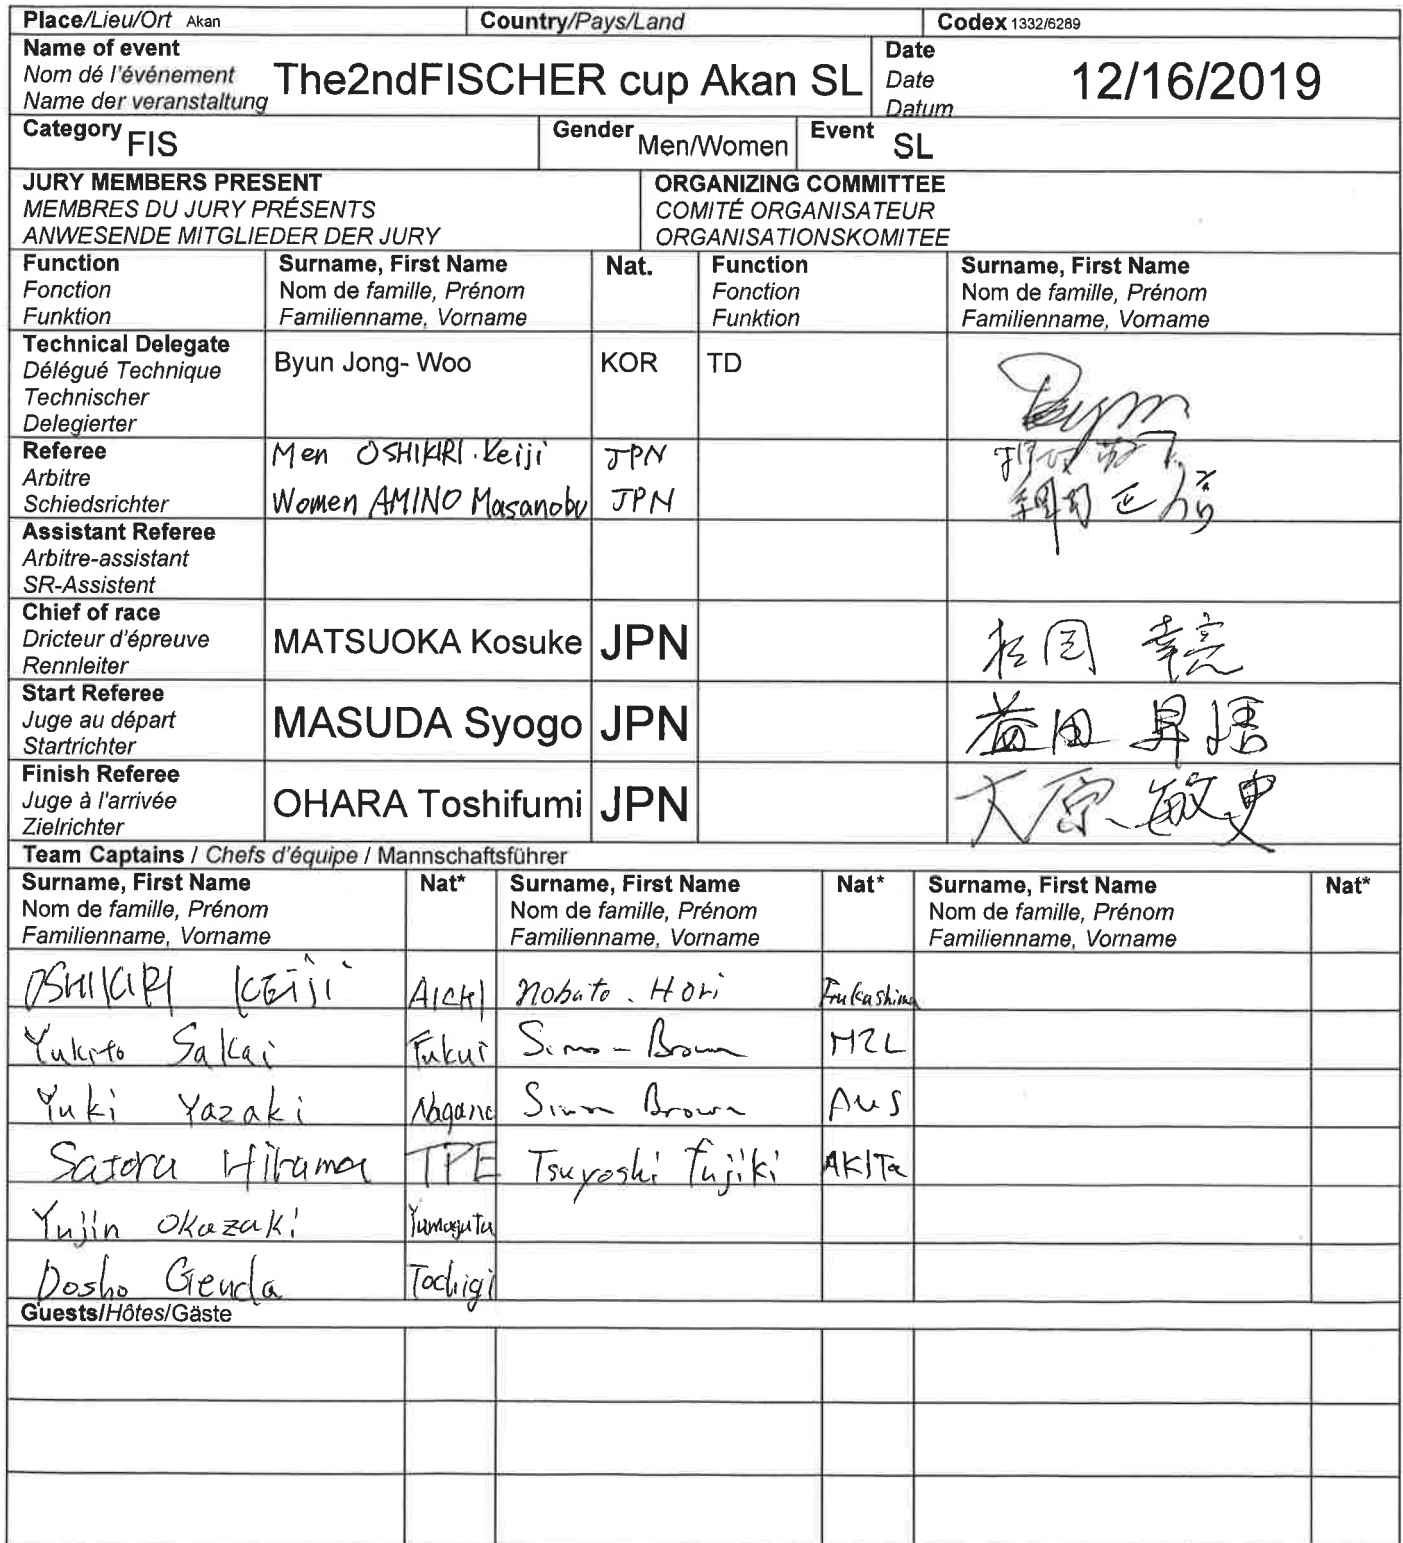 Place/Lieu/Ort Akan Country/Pays/Land Codex 1332/6289
Name of event
Nom dé l'événement
Name der veranstaltung
The2ndFISCHER cup Akan SL
Date
Date
Datum
12/16/2019
Category FIS Gender Men/Women Event SL
JURY MEMBERS PRESENT
MEMBRES DU JURY PRÉSENTS
ANWESENDE MITGLIEDER DER JURY
ORGANIZING COMMITTEE
COMITÉ ORGANISATEUR
ORGANISATIONSKOMITEE
Function
Fonction
Funktion
Surname, First Name
Nom de famille, Prénom
Familienname, Vorname
Nat.
Function
Fonction
Funktion
Surname, First Name
Nom de famille, Prénom
Familienname, Vorname
Technical Delegate
Délégué Technique
Technischer
Delegierter
Byun Jong- Woo KOR TD
Referee
Arbitre
Schiedsrichter
Men OSHIKIRI.Keiji JPN
Women AMINO Masanobu JPN
Assistant Referee
Arbitre-assistant
SR-Assistent
Chief of race
Dricteur d'épreuve
Rennleiter
MATSUOKA Kosuke JPN 松岡 幸亮
Start Referee
Juge au départ
Startrichter
MASUDA Syogo JPN 益田 昇悟
Finish Referee
Juge à l'arrivée
Zielrichter
OHARA Toshifumi JPN 大原 敏史
Team Captains / Chefs d'équipe / Mannschaftsführer
Surname, First Name
Nom de famille, Prénom
Familienname, Vorname
Nat*
Surname, First Name
Nom de famille, Prénom
Familienname, Vorname
Nat*
Surname, First Name
Nom de famille, Prénom
Familienname, Vorname
Nat*
OSHIKIRI KEIJI AICHI Nobuto. Hori Fukushima
Yukito Sakai Fukui Simo-Brown NZL
Yuki Yazaki Nagano Simon Brown AUS
Satoru Hirama TPE Tsuyoshi Fujiki AKITa
Yujin Okazaki
Dosho Genda Tochigi
Guests/Hôtes/Gäste